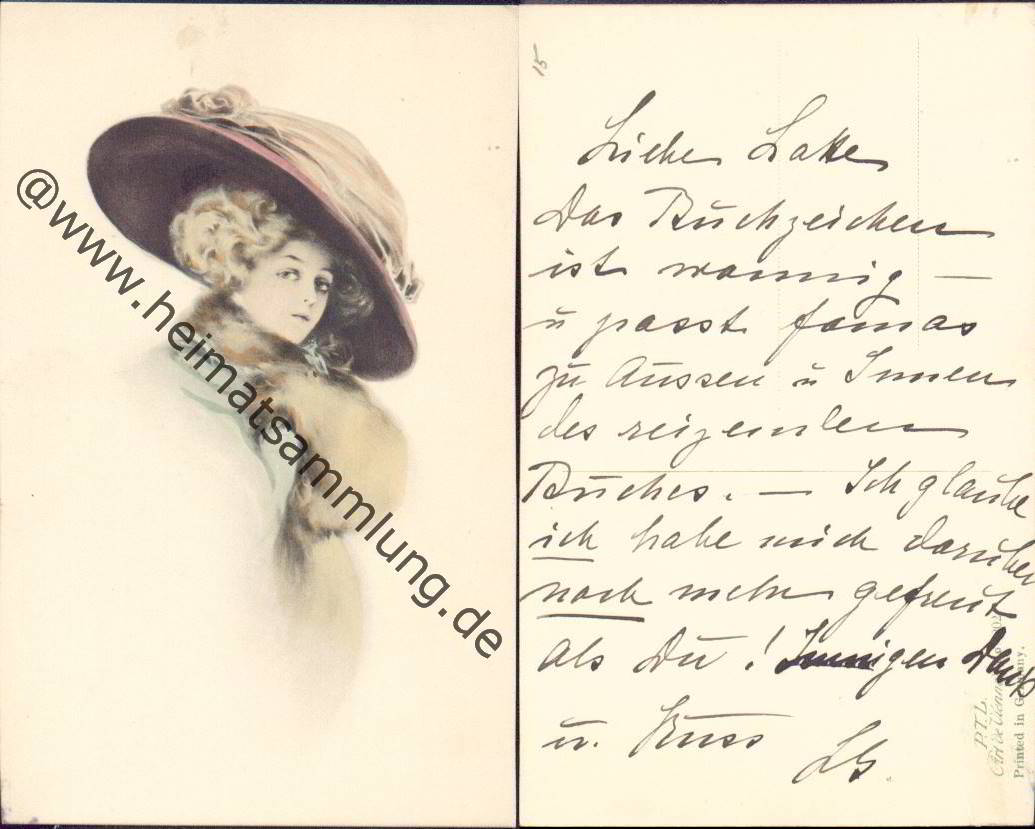 @www.heimatsammlung.de
15
Liebe Lotte
Das Buchzeichen
ist wonnig —
u passt famos
zu Aussen u Innen
des reizenden
Buches. — Ich glaube
ich habe mich darüber
noch mehr gefreut
als Du! Innigen Dank
u. Kuss
P.T.L.
Art de Vienne
Printed in Germany.